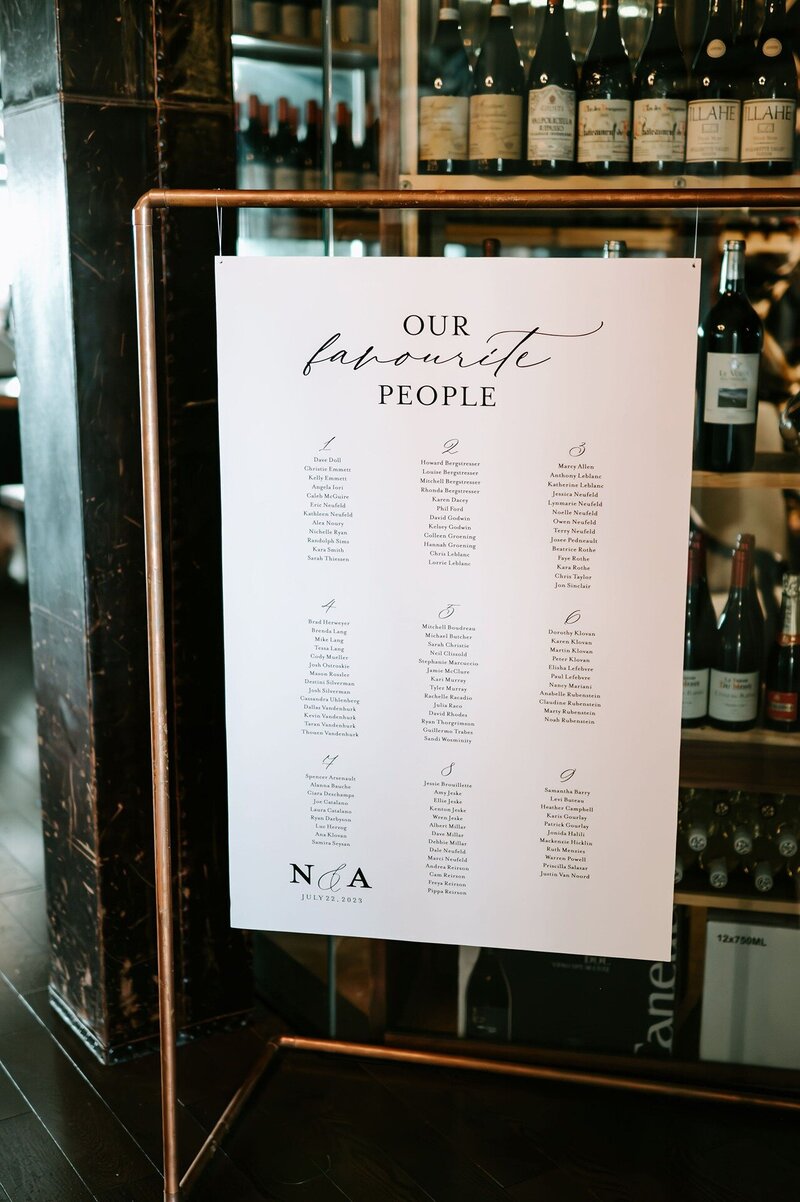 OUR
favourite
PEOPLE
1
Dave Doll
Christie Emmett
Kelly Emmett
Angela Iori
Caleb McGuire
Eric Neufeld
Kathleen Neufeld
Alex Noury
Nichelle Ryan
Randolph Sims
Kara Smith
Sarah Thiessen
2
Howard Bergstresser
Louise Bergstresser
Mitchell Bergstresser
Rhonda Bergstresser
Karen Dacey
Phil Ford
David Godwin
Kelsey Godwin
Colleen Groening
Hannah Groening
Chris Leblanc
Lorrie Leblanc
3
Marcy Allen
Anthony Leblanc
Katherine Leblanc
Jessica Neufeld
Lynmarie Neufeld
Noelle Neufeld
Owen Neufeld
Terry Neufeld
Josee Pedneault
Beatrice Rothe
Faye Rothe
Kara Rothe
Chris Taylor
Jon Sinclair
4
Brad Herweyer
Brenda Lang
Mike Lang
Tessa Lang
Cody Mueller
Josh Ostroskie
Mason Rossler
Destini Silverman
Josh Silverman
Cassandra Uhlenberg
Dallas Vandenhurk
Kevin Vandenhurk
Taran Vandenhurk
Thouen Vandenhurk
5
Mitchell Boudreau
Michael Butcher
Sarah Christie
Neil Clissold
Stephanie Marcuccio
Jamie McClure
Kari Murray
Tyler Murray
Rachelle Racadio
Julia Raco
David Rhodes
Ryan Thorgrimson
Guillermo Trabes
Sandi Wosminity
6
Dorothy Klovan
Karen Klovan
Martin Klovan
Peter Klovan
Elisha Lefebvre
Paul Lefebvre
Nancy Mariani
Anabelle Rubenstein
Claudine Rubenstein
Marty Rubenstein
Noah Rubenstein
7
Spencer Arsenault
Alanna Bauche
Ciara Deschamps
Joe Catalano
Laura Catalano
Ryan Darbyson
Luc Herzog
Ana Klovan
Samira Seysan
8
Jessie Brouillette
Amy Jeske
Ellie Jeske
Kenton Jeske
Wren Jeske
Albert Millar
Dave Millar
Debbie Millar
Dale Neufeld
Marci Neufeld
Andrea Reirson
Cam Reirson
Freya Reirson
Pippa Reirson
9
Samantha Barry
Levi Buteau
Heather Campbell
Karis Gourlay
Patrick Gourlay
Jonida Halili
Mackenzie Hicklin
Ruth Menzies
Warren Powell
Priscilla Salazar
Justin Van Noord
N & A
JULY 22, 2023
ILLAHE
ILLAHE
12x750ML